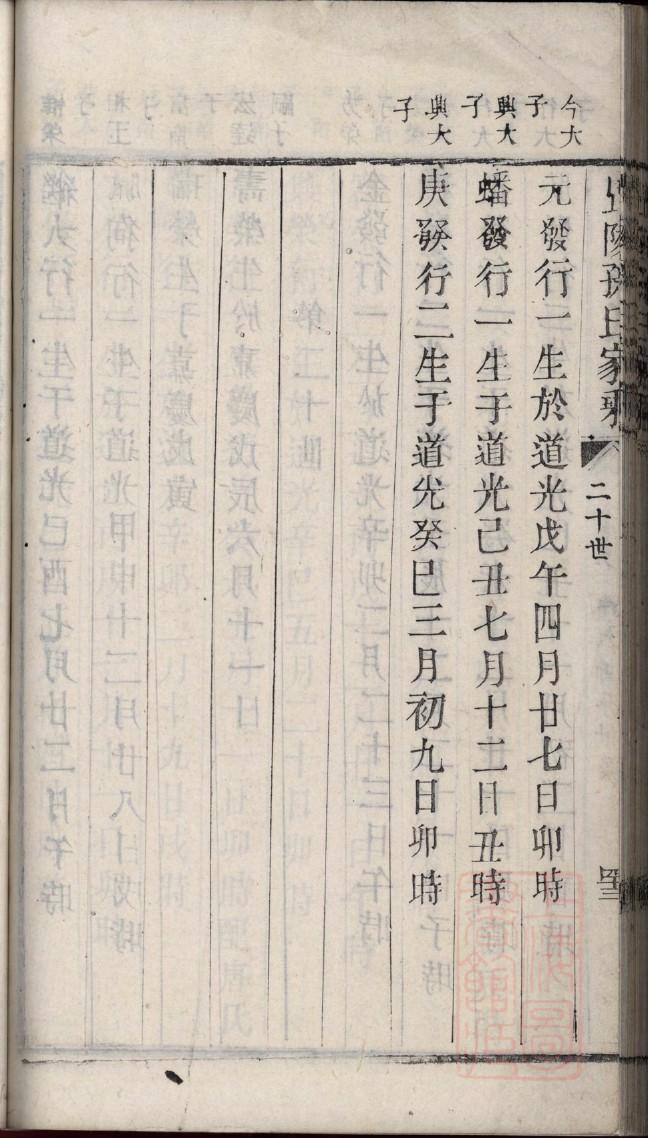 孫氏家乘
二十世
今大子
元發行一生於道光戊午四月廿七日卯時
興大子
蟠發行一生于道光己丑七月十二日丑時
興大子
庚發行二生于道光癸巳三月初九日卯時